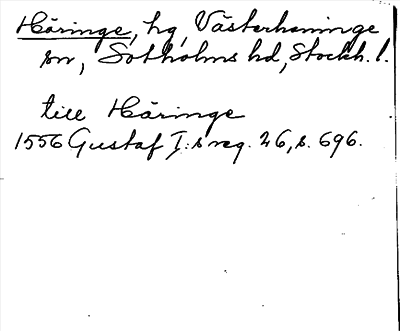 Häringe, hg, Västerhaninge
sn, Sotholms hd, Stockh. l.
till Häringe
1556 Gustaf I:s reg. 26, s. 696.